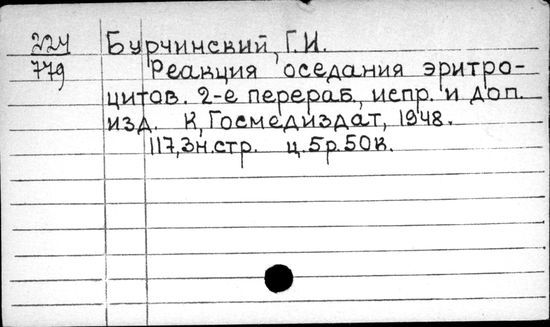 224 Бурчинский, Г.И.
779 Реакция оседания эритро-
цитов. 2-е перераб., испр. и доп.
изд. К, Госмедиздат, 1948.
117,3н.стр. ц.5р.50к.